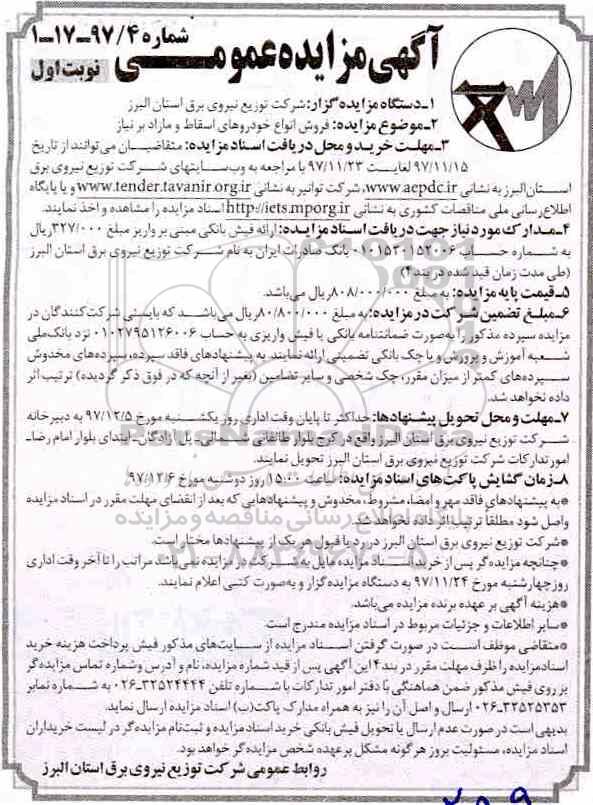 آگهی مزایده عمومی
شماره ۹۷/۴-۱۷-۱
نوبت اول
۱ـ دستگاه مزایده گزار: شرکت توزیع نیروی برق استان البرز
۲ـ موضوع مزایده: فروش انواع خودروهای اسقاط و مازاد بر نیاز
۳ـ مهلت خرید و محل دریافت اسناد مزایده: متقاضیان می‌توانند از تاریخ
۹۷/۱۱/۱۵ لغایت ۹۷/۱۱/۲۳ با مراجعه به وب‌سایتهای شرکت توزیع نیروی برق
استان البرز به نشانی www.aepdc.ir، شرکت توانیر به نشانی www.tender.tavanir.org.ir و یا پایگاه
اطلاع‌رسانی ملی مناقصات کشوری به نشانی http://iets.mporg.ir اسناد مزایده را مشاهده و اخذ نمایند.
۴ـ مدارک مورد نیاز جهت دریافت اسناد مزایده: ارائه فیش بانکی مبنی بر واریز مبلغ ۳۲۷/۰۰۰ریال
به شماره حساب ۰۱۰۱۵۳۰۱۵۲۰۰۶ بانک صادرات ایران به نام شرکت توزیع نیروی برق استان البرز
(طی مدت زمان قید شده در بند ۳)
۵ـ قیمت پایه مزایده: به مبلغ ۸۰۸/۰۰۰/۰۰۰ریال می‌باشد.
۶ـ مبلغ تضمین شرکت در مزایده: به مبلغ ۸۰/۸۰۰/۰۰۰ریال می‌باشد که بایستی شرکت‌کنندگان در
مزایده سپرده مذکور را به‌صورت ضمانتنامه بانکی یا فیش واریزی به حساب ۰۱۰۲۷۹۵۱۲۶۰۰۶ نزد بانک ملی
شعبه آموزش و پرورش و یا چک بانکی تضمینی ارائه نمایند به پیشنهادهای فاقد سپرده، سپرده‌های مخدوش
سپرده‌های کمتر از میزان مقرر، چک شخصی و سایر تضامین (بغیر از آنچه که در فوق ذکر گردیده) ترتیب اثر
داده نخواهد شد.
۷ـ مهلت و محل تحویل پیشنهادها: حداکثر تا پایان وقت اداری روز یکشنبه مورخ ۹۷/۱۲/۵ به دبیرخانه
شرکت توزیع نیروی برق استان البرز واقع در کرج بلوار طالقانی شمالی ـ پل آزادگان ـ ابتدای بلوار امام رضا ـ
امور تدارکات شرکت توزیع نیروی برق استان البرز تحویل نمایند.
۸ـ زمان گشایش پاکت‌های اسناد مزایده: ساعت ۱۵:۰۰ روز دوشنبه مورخ ۹۷/۱۲/۶
*به پیشنهادهای فاقد مهر و امضا، مشروط، مخدوش و پیشنهادهایی که بعد از انقضای مهلت مقرر در اسناد مزایده
واصل شود مطلقاً ترتیب اثر داده نخواهد شد.
*شرکت توزیع نیروی برق استان البرز در رد یا قبول هر یک از پیشنهادها مختار است.
*چنانچه مزایده‌گر پس از خرید اسناد مزایده مایل به شرکت در مزایده نمی‌باشد مراتب را تا آخر وقت اداری
روز چهارشنبه مورخ ۹۷/۱۱/۲۴ به دستگاه مزایده‌گزار و به‌صورت کتبی اعلام نمایند.
*هزینه آگهی بر عهده برنده مزایده می‌باشد.
*سایر اطلاعات و جزئیات مربوط در اسناد مزایده مندرج است.
*متقاضی موظف است در صورت گرفتن اسناد مزایده از سایت‌های مذکور فیش پرداخت هزینه خرید
اسناد مزایده را ظرف مهلت مقرر در بند ۴ این آگهی پس از قید شماره مزایده، نام و آدرس و شماره تماس مزایده‌گر
بر روی فیش مذکور ضمن هماهنگی با دفتر امور تدارکات با شماره تلفن ۳۲۵۲۴۴۴۴-۰۲۶ به شماره نمابر
۳۲۵۲۵۳۵۳-۰۲۶ ارسال و اصل آن را نیز به همراه مدارک پاکت(ب) اسناد مزایده ارسال نماید.
بدیهی است در صورت عدم ارسال یا تحویل فیش بانکی خرید اسناد مزایده و ثبت‌نام مزایده‌گر در لیست خریداران
اسناد مزایده، مسئولیت بروز هرگونه مشکل بر عهده شخص مزایده‌گر خواهد بود.
روابط عمومی شرکت توزیع نیروی برق استان البرز